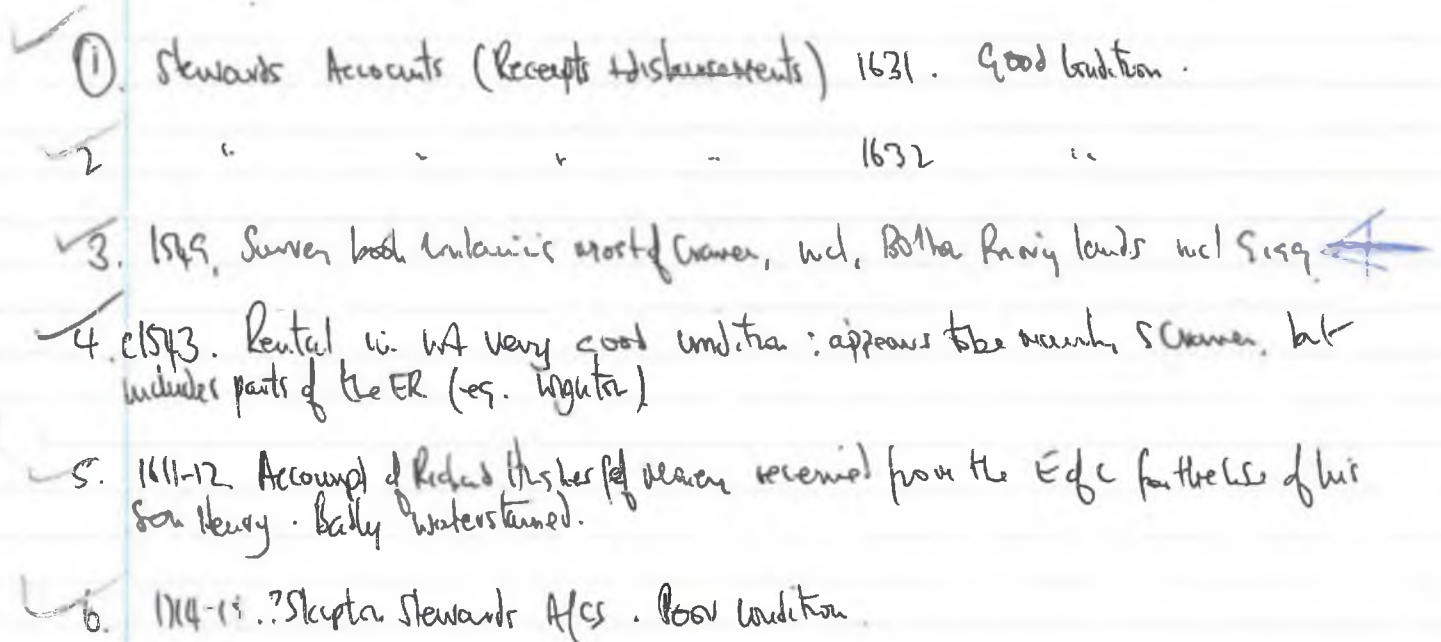 1. Stewards Accounts (Receipts + disbursements) 1631. Good Condition.
2 " " " " 1632 "
3. Survey book most of Craven, incl, Bolton Priory lands incl Gigg
4. c1543. Rental in very good condition: appears to be Craven, but
includes parts of the ER (eg.
5. 1611-12 Accompt of Richard of received from the E of C for the use of his
son Henry. Badly waterstained.
6. ?Skipton Stewards A/cs. Poor condition.